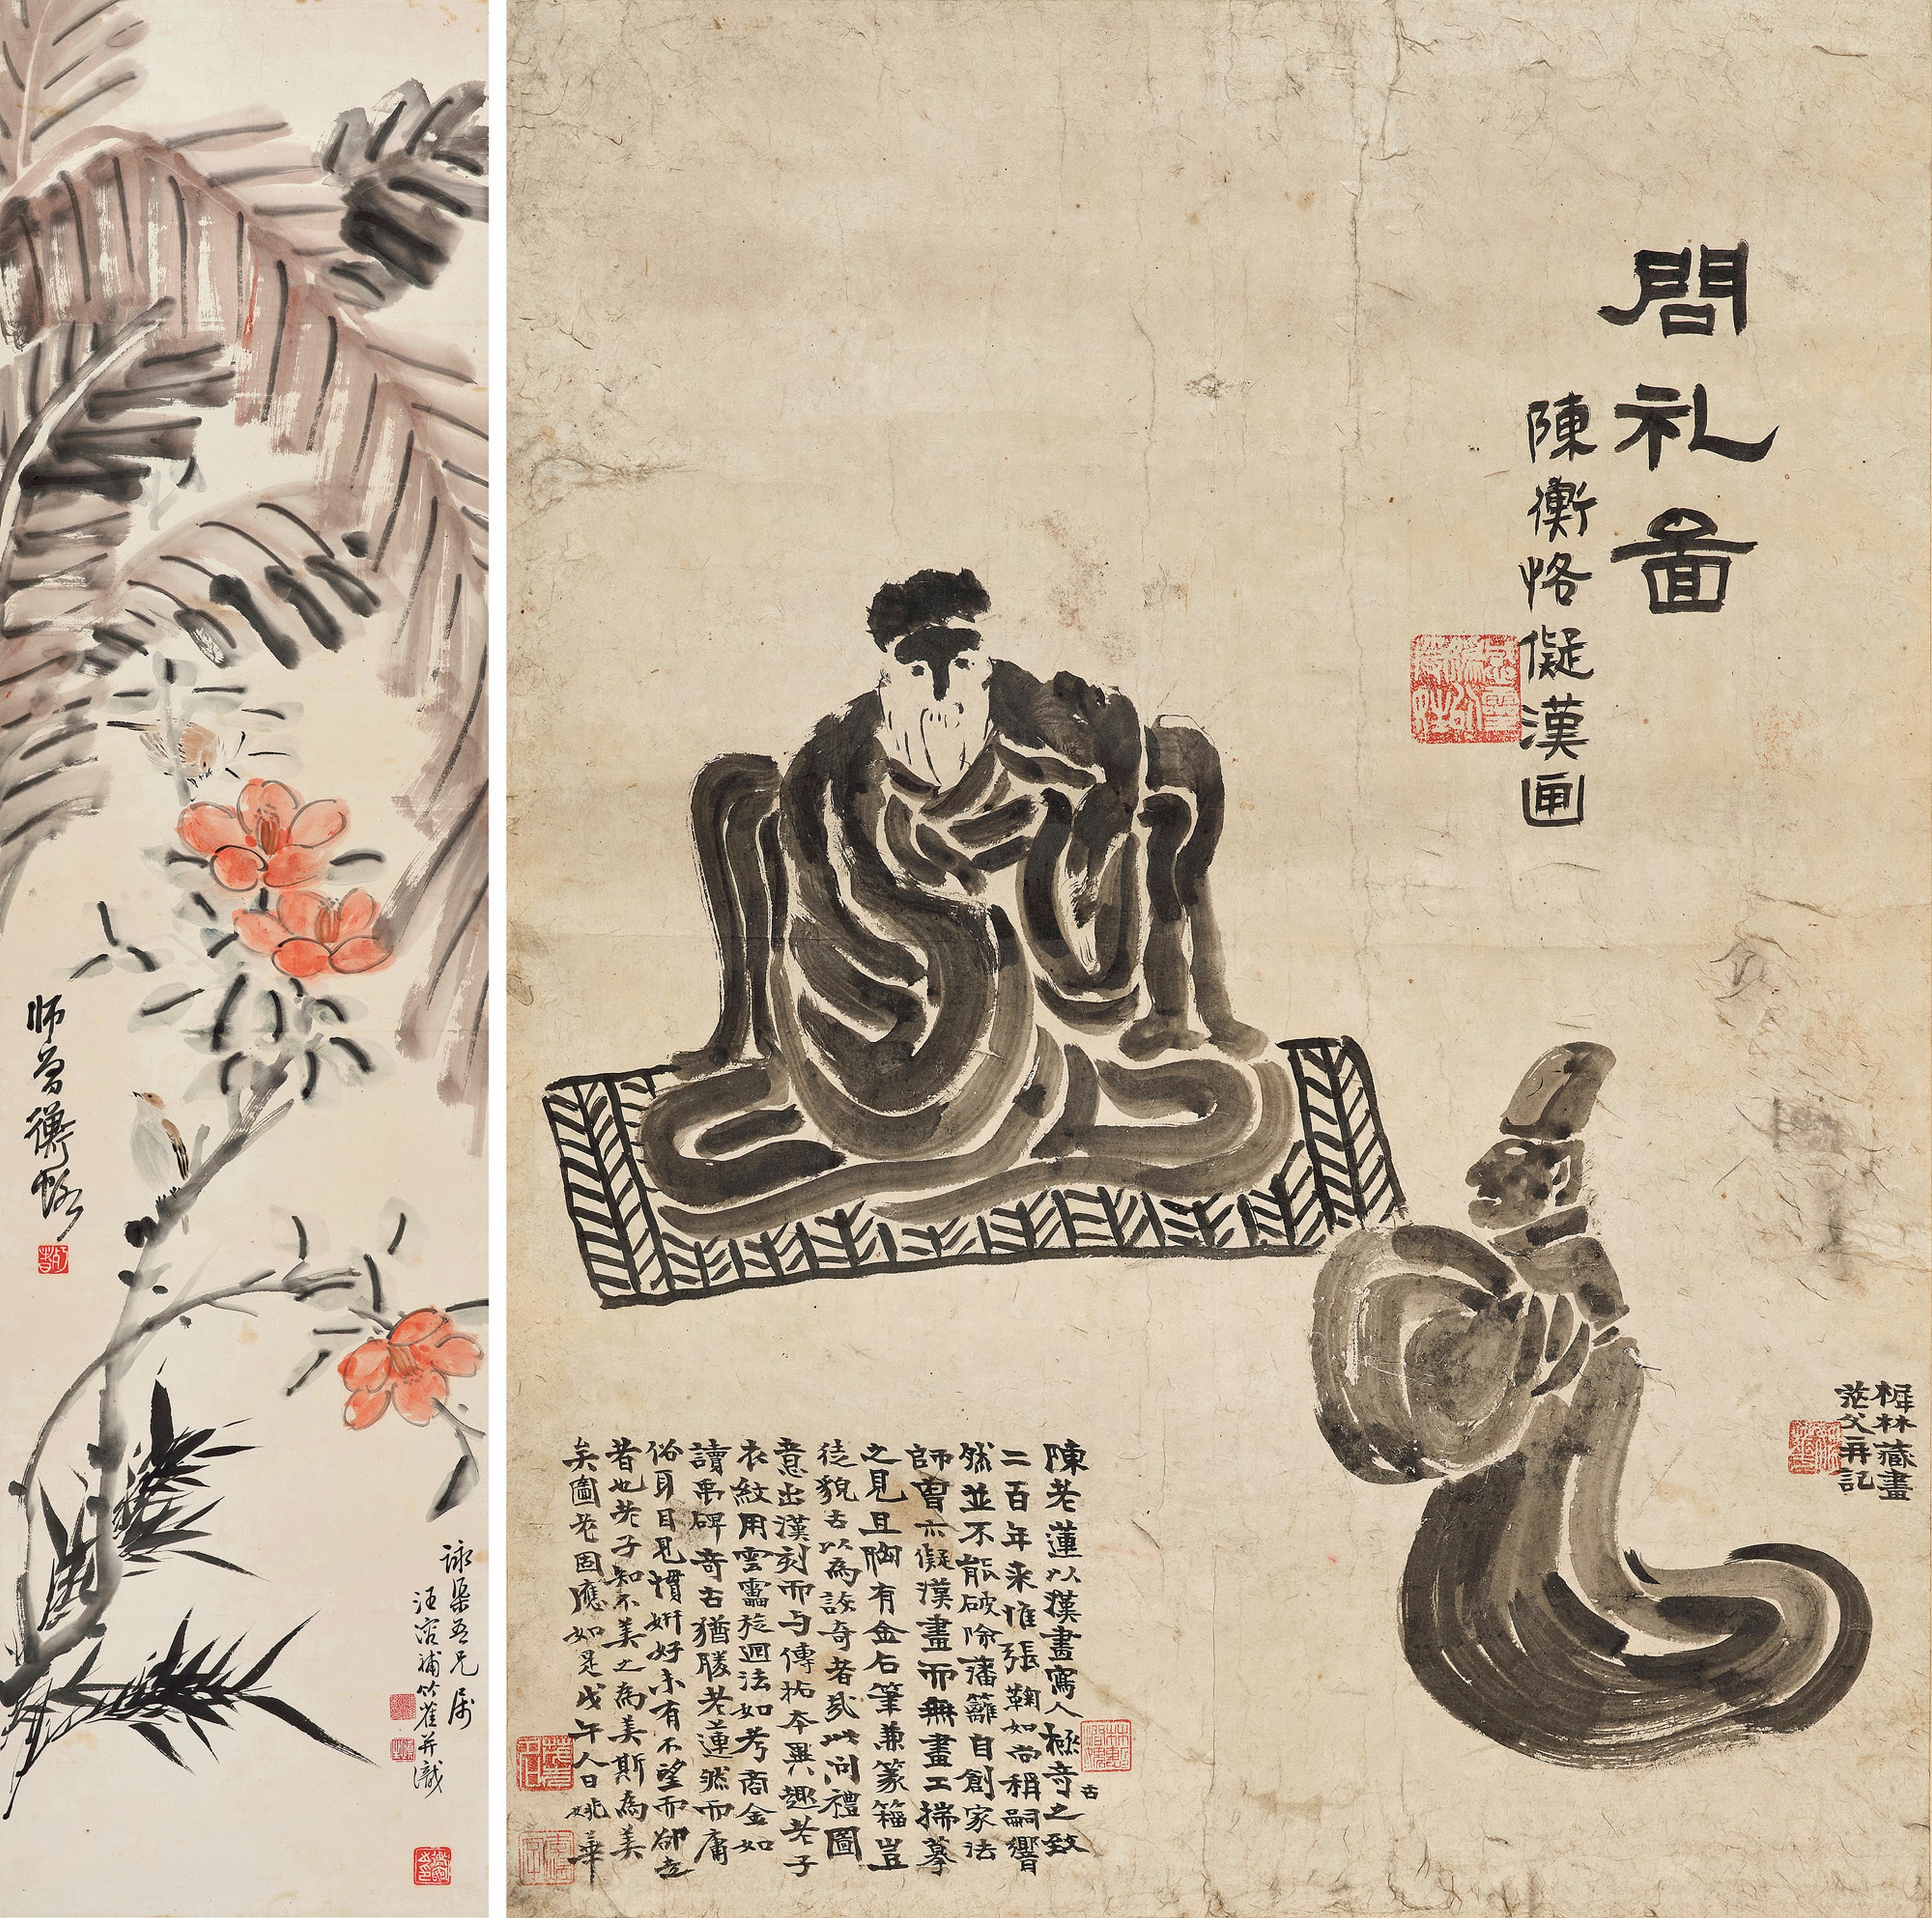 師曾衡恪
詠渠吾兄屬
汪溶補竹雀并識
問礼圖
陳衡恪儗漢画
陳老蓮以漢畫寫人極奇之致
古
二百年来惟張鞠如尚稱嗣響
然並不能破除藩籬自創家法
師曾亦儗漢畫而無畫工揣摹
之見且胸有金石筆兼篆籀豈
徒貌古以為詼奇者哉此问禮圖
意出漢刻而与傳拓本異趣老子
衣紋用雲靁迴法如考商金如
讀禹碑奇古猶勝老蓮然而庸
俗耳目見慣姸好未有不望而卻走
者也老子知不美之為美斯為美
矣圖老固應如是戊午人日姚華
林藏畫
茫父再記